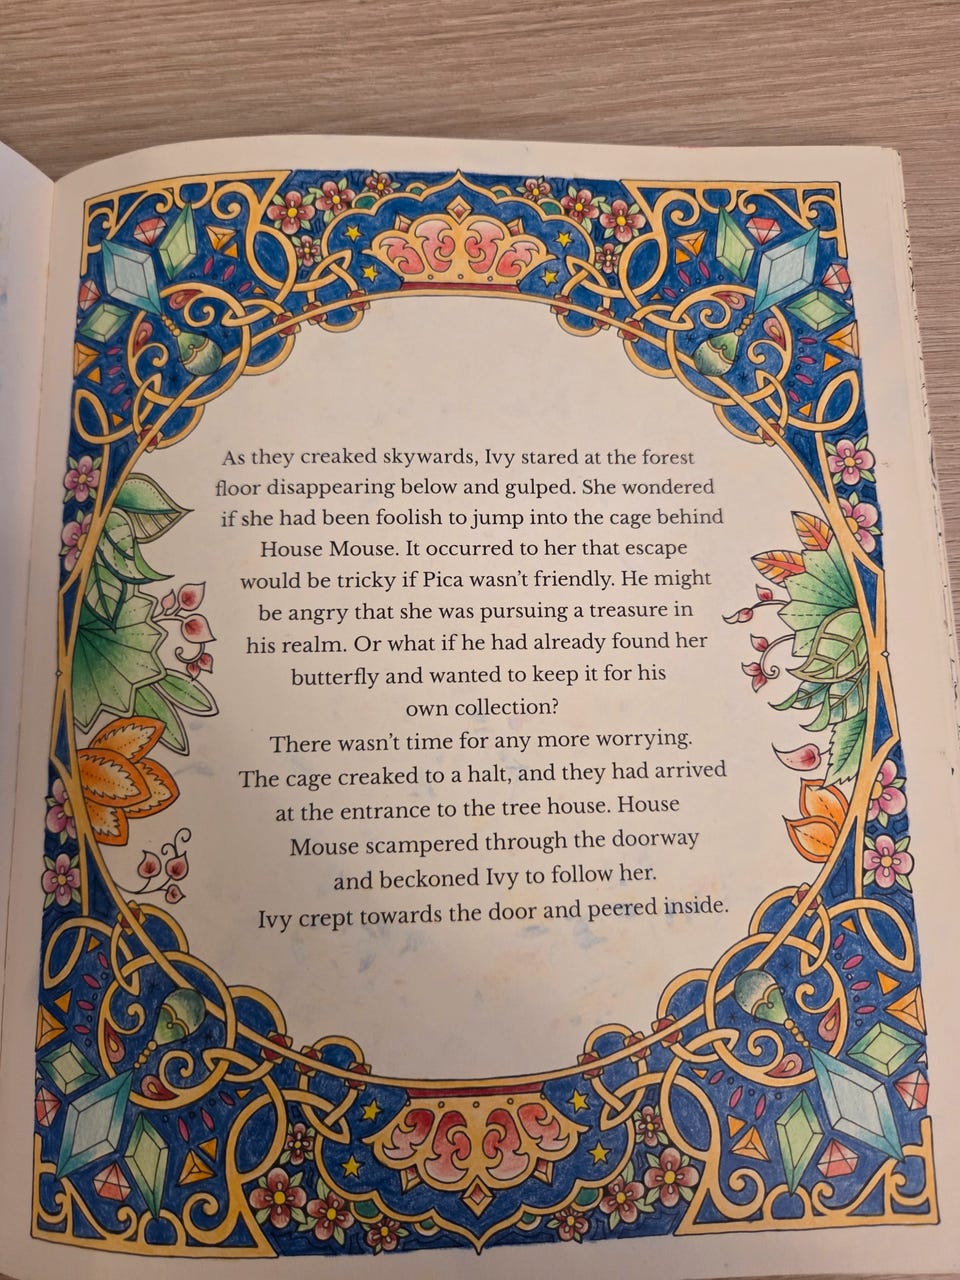 As they creaked skywards, Ivy stared at the forest
floor disappearing below and gulped. She wondered
if she had been foolish to jump into the cage behind
House Mouse. It occurred to her that escape
would be tricky if Pica wasn't friendly. He might
be angry that she was pursuing a treasure in
his realm. Or what if he had already found her
butterfly and wanted to keep it for his
own collection?
There wasn't time for any more worrying.
The cage creaked to a halt, and they had arrived
at the entrance to the tree house. House
Mouse scampered through the doorway
and beckoned Ivy to follow her.
Ivy crept towards the door and peered inside.